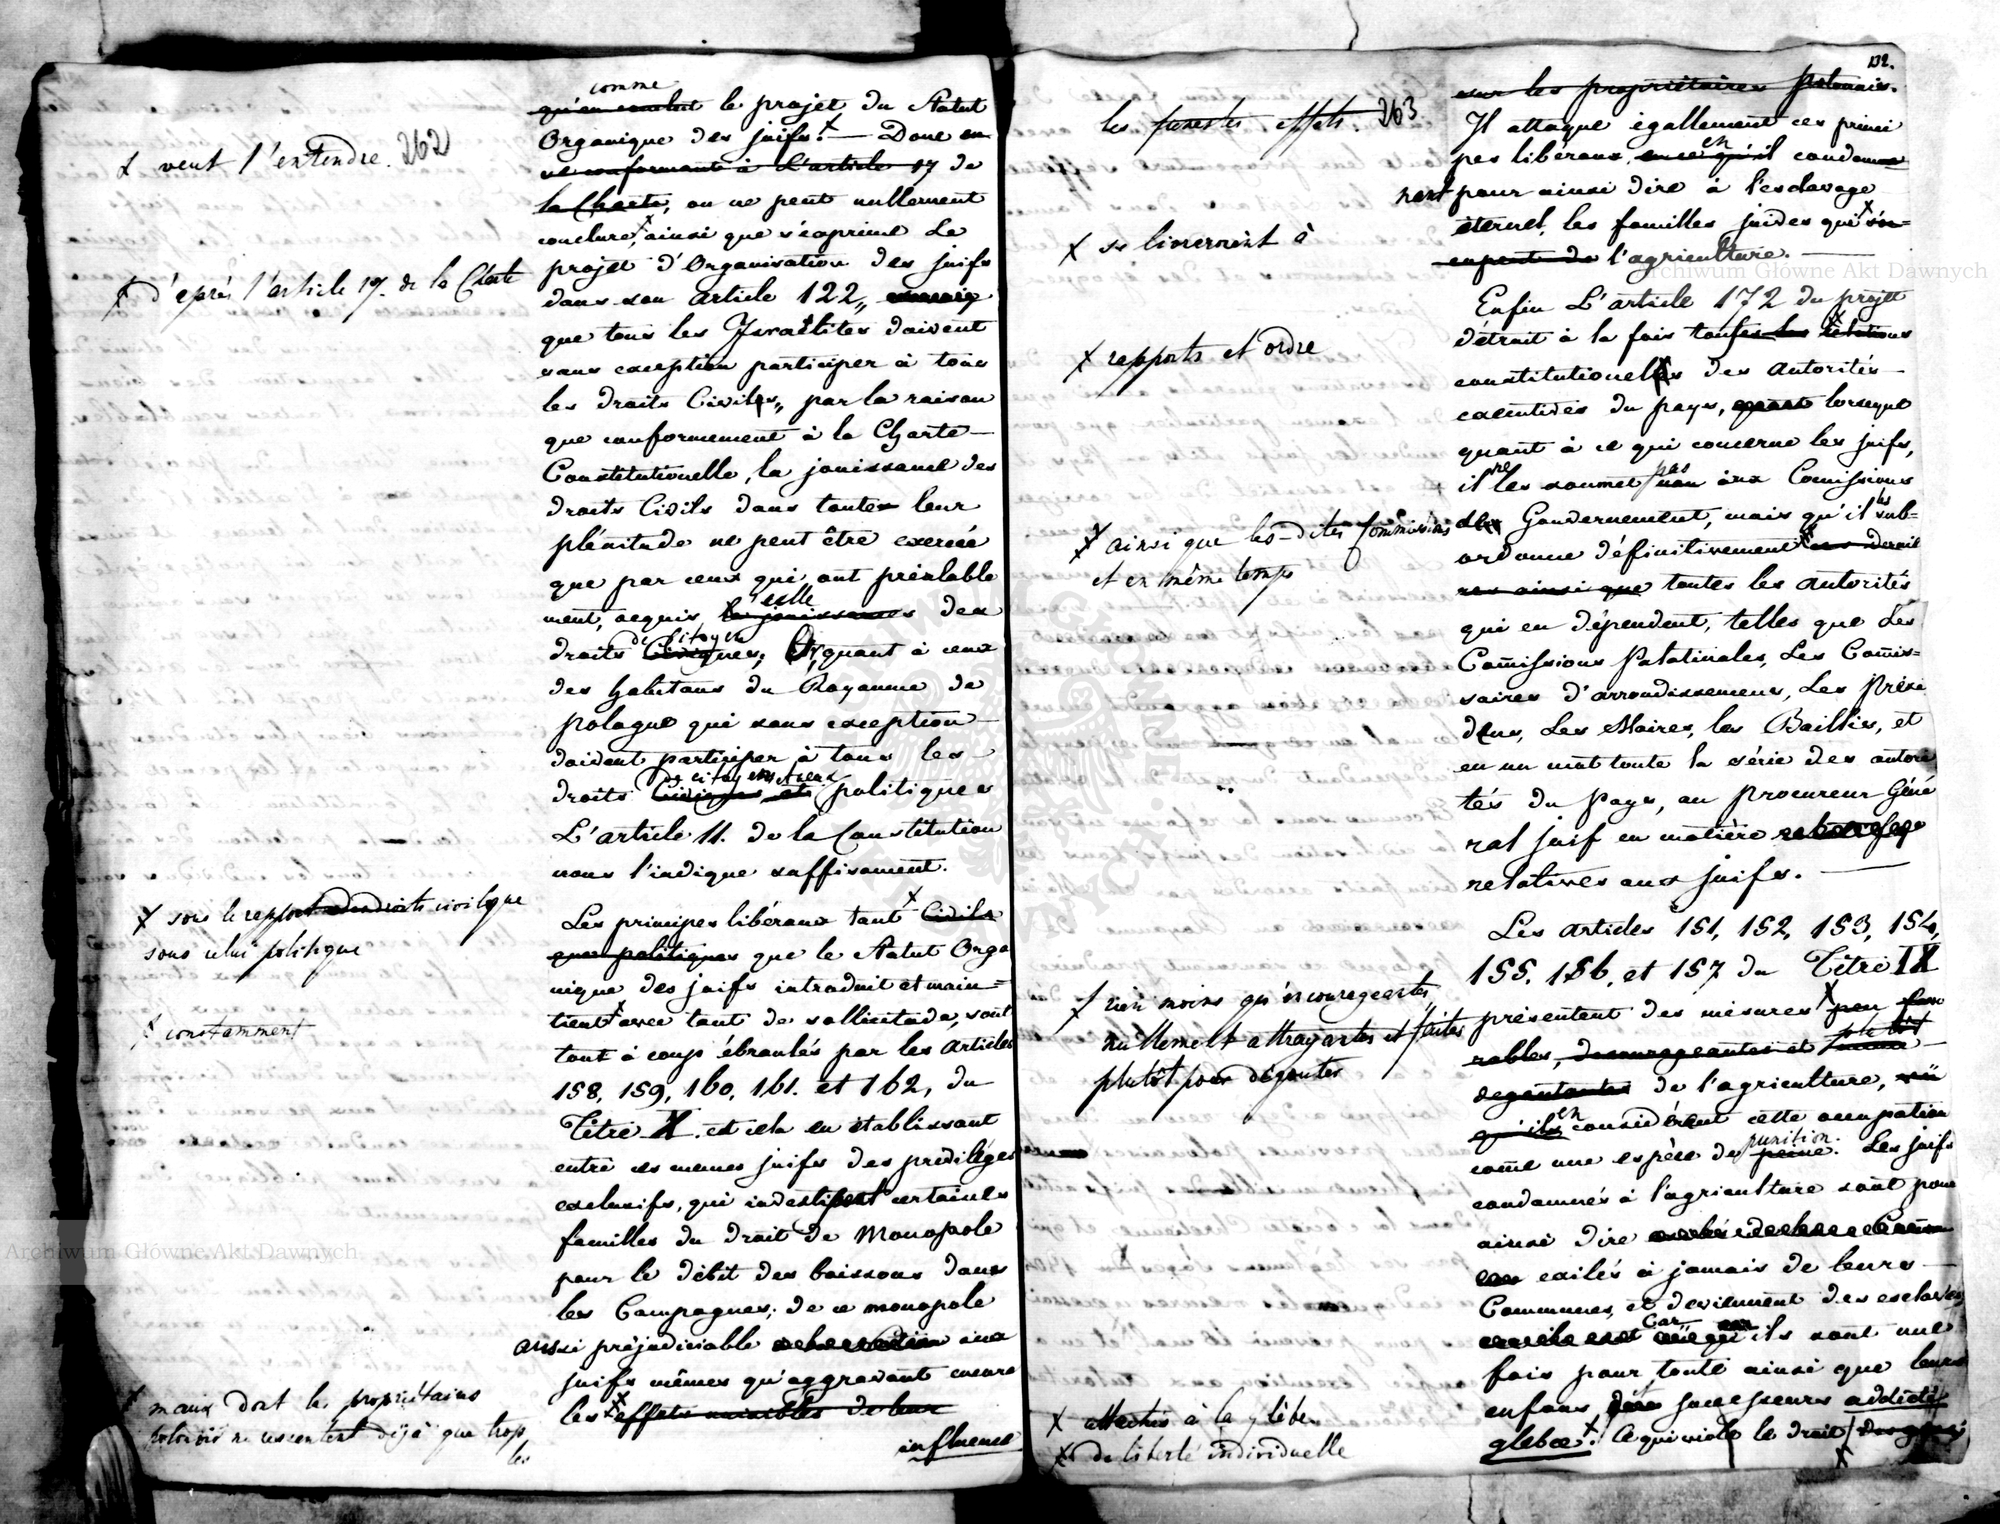 262
x veut l'entendre.
x d'après l'article 17. de la Charte
x sous le rapport des droits civils que
sous celui politique
x constamment
x maux dont les propriétaires
polonois ne ressentent déjà que trop
les
comme
qu'en conclut le projet du Statut
Organique des juifs. x — Donc en
se conformant à l'article 17 de
la Charte, on ne peut nullement
conclure, x ainsi que s'exprime Le
projet d'Organisation des juifs
dans son article 122,,
que tous les Israëlites doivent
sans exception participer à tous
les droits Civils,, par la raison
que conformement à la Charte —
Constitutionelle, la jouissance des
droits Civils dans toutes leur
plénitude ne peut être exercée
que par ceux qui ont préalable
ment, acquis, celle la jouissance des
de Citoyen
droits Civiques; Or, quant à ceux
des habitans du Royaume de
pologne qui sans exception —
doivent participer à tous les —
de citoyens
droits Civiques et politiques
L'article 11. de la Constitution
nous l'indique suffisament.
Les principes libéraux tant x Civils
que politiques que le Statut Orga
nique des juifs introduit et main=
tient x avec tant de sollicitude, sont
tout à coup ébranlés par les Articles
158, 159, 160, 161. et 162, du
Titre X. et cela en établissant
entre ces memes juifs des privilèges
exclusifs, qui investissent certaines
familles du droit de Monopole
pour le débit des boissons dans
les Campagnes; de ce monopole
aussi préjudiciable aux
juifs mêmes qu'aggravant encore
les x effets nuisibles de leur
influence
132.
263
les funestes effets.
x se livreroient à
x rapports et ordre
x ainsi que les-dites Commissions
et en même temps
x rien moins qu'encourageantes,
nullement attrayantes et faites
plutôt pour dégouter
x attachés à la glèbe
x de liberté individuelle
sur les propriétaires polonais.
Il attaque égallement ces princi
pes libéraux, en ce qu'il en condamne
nant pour ainsi dire à l'esclavage
éternel, les familles juives qui x s'oc=
cupent de l'agriculture. —
Enfin L'article 172 du projet
détruit à la fois toutes les x relations
constitutionelles des autorités —
exentives du pays, lorsque
quant à ce qui concerne les juifs,
il ne les soumet pas non aux Comissions
du Gouvernement, mais qu'il les sub=
ordonne définitivement x ces derniè
res ainsi que toutes les autorités
qui en dépendent, telles que Les
Comissions Palatinales, Les Comis=
saires d'arrondissemens, Les Prési
dens, Les Maires, les Baillis, et
en un mot toute la série des autori
tés du Pays, au procureur Géné
ral juif en matière
relatives aux juifs. —
Les articles 151, 152, 153, 154,
155, 156, et 157 du Titre IX
présentent des mesures x peu favo
rables, decourageantes et plutôt
degoutantes de l'agriculture,
qu'ils en considérent cette occupation
come une espèce de peine punition. Les juifs
condamnés à l'agriculture sont pour
ainsi dire
exilés à jamais de leurs —
Communes, et deviennent des esclaves,
Car ils sont une
fois pour toute ainsi que leurs
enfans successeurs addicti
glebae. x Ce qui viole le droit
x